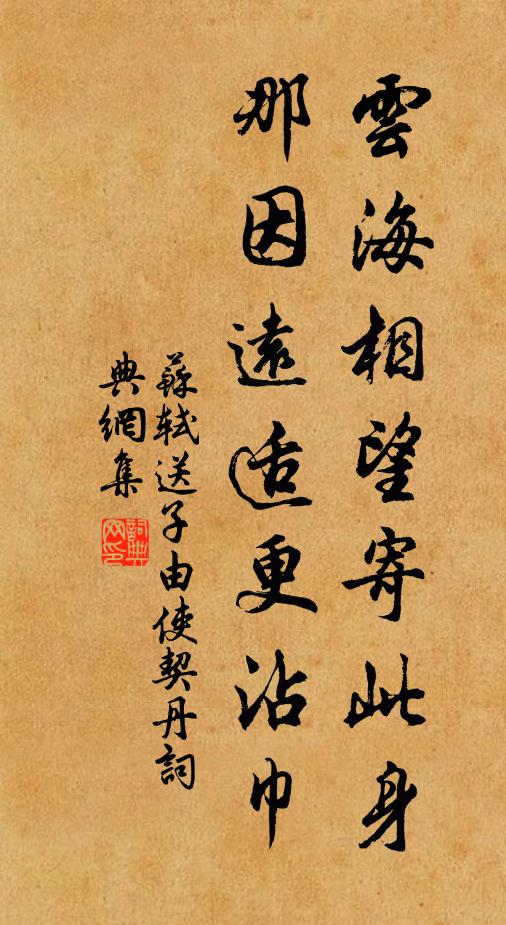 雲海相望寄此身
那因遠适更沾巾
蘇軾送子由使契丹詞
典網集
詞典网印